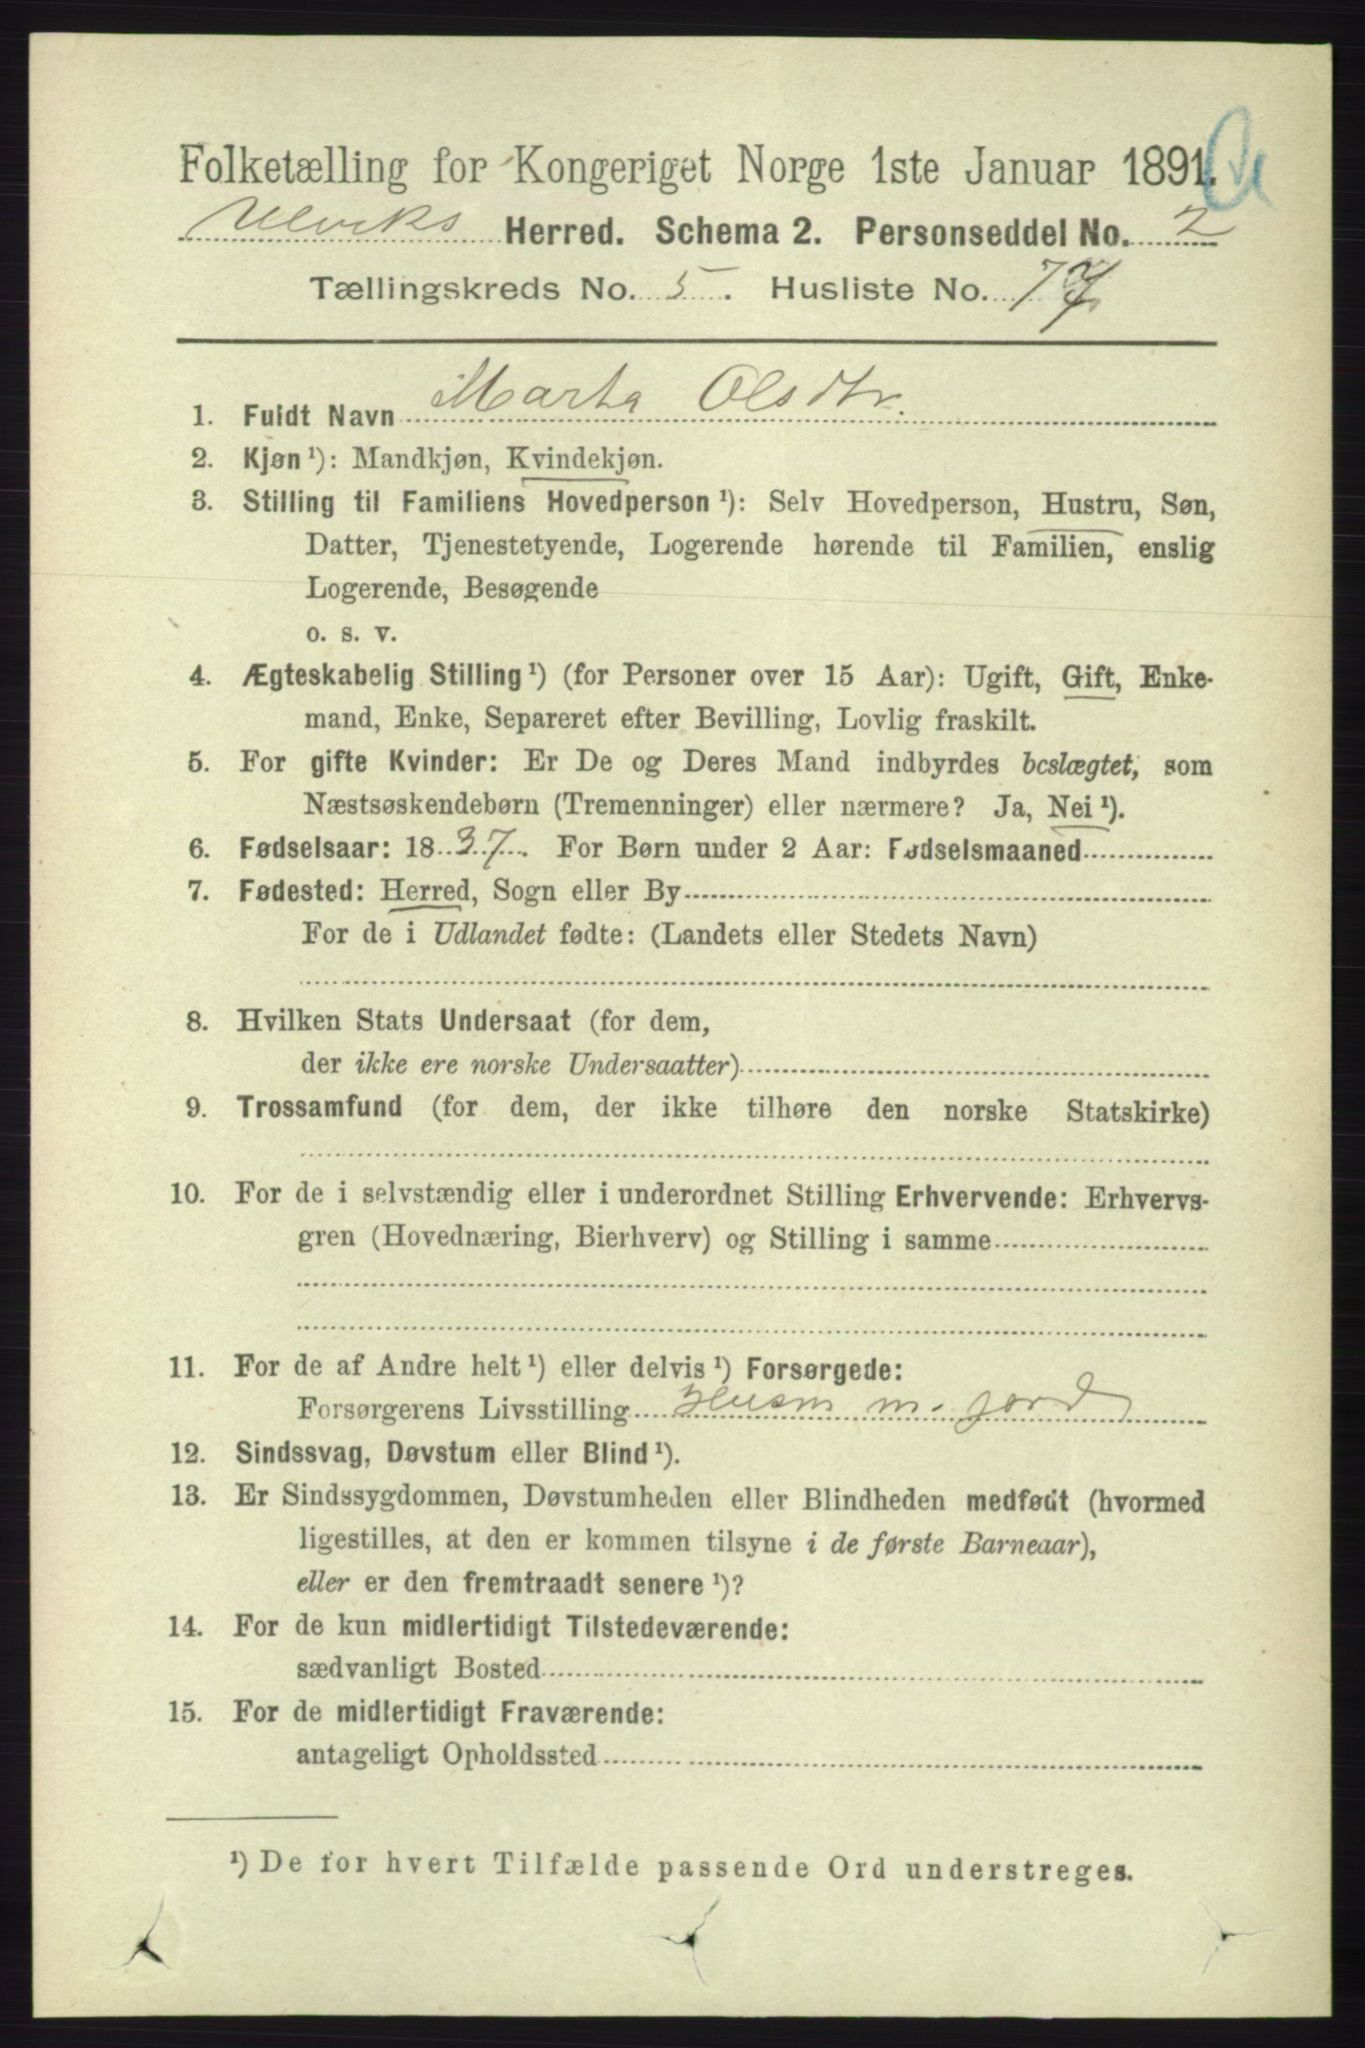 Folketælling for Kongeriget Norge 1ste Januar 1891.
Ulviks Herred. Schema 2. Personseddel No. 2
Tællingskreds No. 5. Husliste No.
1. Fuldt Navn Marta Olsdtr.
2. Kjøn ¹): Mandkjøn, Kvindekjøn.
3. Stilling til Familiens Hovedperson ¹): Selv Hovedperson, Hustru, Søn,
Datter, Tjenestetyende, Logerende hørende til Familien, enslig
Logerende, Besøgende
o. s. v.
4. Ægteskabelig Stilling ¹) (for Personer over 15 Aar): Ugift, Gift, Enke-
mand, Enke, Separeret efter Bevilling, Lovlig fraskilt.
5. For gifte Kvinder: Er De og Deres Mand indbyrdes beslægtet, som
Næstsøskendebørn (Tremenninger) eller nærmere? Ja, Nei ¹).
6. Fødselsaar: 1837. For Børn under 2 Aar: Fødselsmaaned
7. Fødested: Herred, Sogn eller By
For de i Udlandet fødte: (Landets eller Stedets Navn)
8. Hvilken Stats Undersaat (for dem,
der ikke ere norske Undersaatter)
9. Trossamfund (for dem, der ikke tilhøre den norske Statskirke)
10. For de i selvstændig eller i underordnet Stilling Erhvervende: Erhvervs-
gren (Hovednæring, Bierhverv) og Stilling i samme
11. For de af Andre helt ¹) eller delvis ¹) Forsørgede:
Forsørgerens Livsstilling Husm m. jord
12. Sindssvag, Døvstum eller Blind ¹).
13. Er Sindssygdommen, Døvstumheden eller Blindheden medfødt (hvormed
ligestilles, at den er kommen tilsyne i de første Barneaar),
eller er den fremtraadt senere ¹)?
14. For de kun midlertidigt Tilstedeværende:
sædvanligt Bosted
15. For de midlertidigt Fraværende:
antageligt Opholdssted
¹) De for hvert Tilfælde passende Ord understreges.